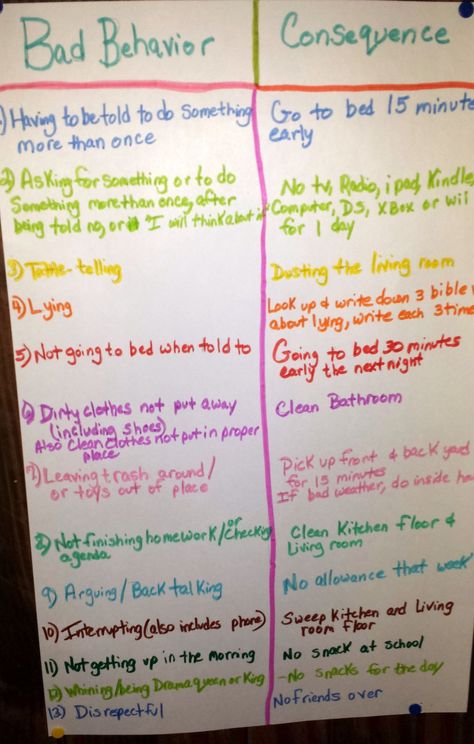 Bad Behavior
Consequence
1) Having to be told to do something
more than once
Go to bed 15 minute
early
2) Asking for something or to do
Something more than once, after
being told no, or "I will think about it"
No tv, Radio, ipad, Kindle,
Computer, DS, XBox or wii
for 1 day
3) Tattle-telling
Dusting the living room
4) Lying
Look up & write down 3 bible
about lying, write each 3 time
5) Not going to bed when told to
Going to bed 30 minutes
early the next night
6) Dirty clothes not put away
(including shoes)
Also clean clothes not put in proper
place
Clean Bathroom
7) Leaving trash around/
or toys out of place
Pick up front & back yard
for 15 minutes
If bad weather, do inside
8) Not finishing homework/or checking
agenda
Clean Kitchen floor &
Living room
9) Arguing/Back talking
No allowance that week
10) Interrupting (also includes phone)
Sweep Kitchen and Living
room floor
11) Not getting up in the morning
No snack at school
12) Whining/being Drama queen or King
-No snacks for the day
13) Disrespectful
No friends over